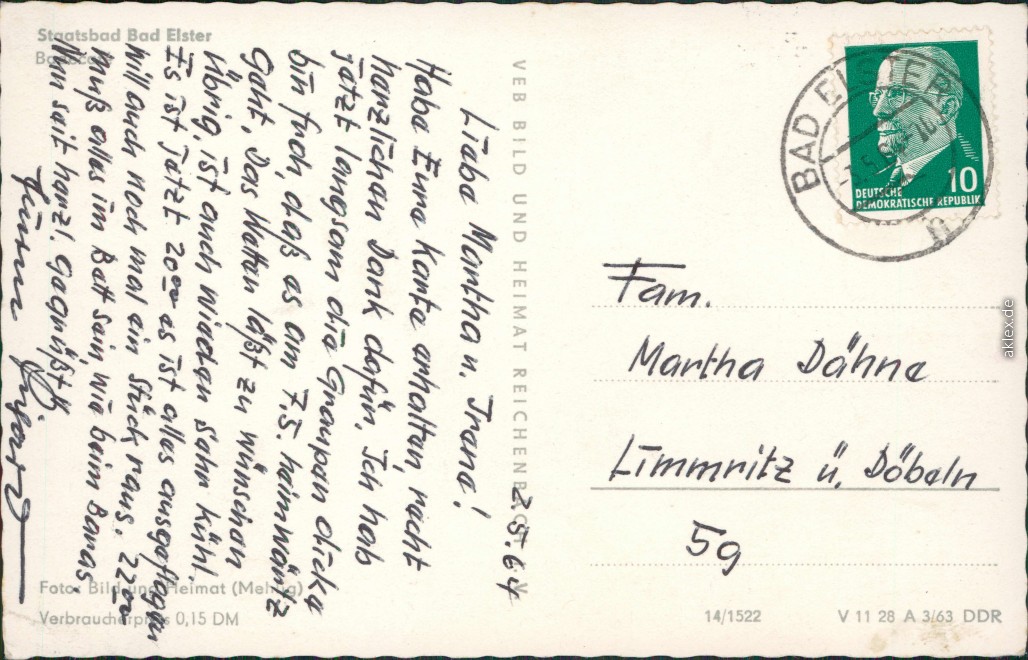 Staatsbad Bad Elster
2.5.64
Liebe Martha u. Irene!
Habe Eure Karte erhalten, recht
herzlichen Dank dafür. Ich hab
jetzt langsam die Graupen dicke
bin froh, daß es am 7.5. heimwärts
geht. Das Wetter läßt zu wünschen
übrig, ist auch wieder sehr kühl.
Es ist jetzt 20 00 es ist alles ausgeflogen
will auch noch mal ein Stück raus. 22 00
muß alles im Bett sein, wie beim Barras.
Nun seit herzl. gegrüßt
Foto: Bild und Heimat (Mehlig)
Verbraucherpreis 0,15 DM
VEB BILD UND HEIMAT REICHENBACH I. V.
BAD ELSTER
DEUTSCHE
DEMOKRATISCHE REPUBLIK
10
Fam.
Martha Dähne
Limmritz ü. Döbeln
59
14/1522
V 11 28 A 3/63 DDR
aklex.de